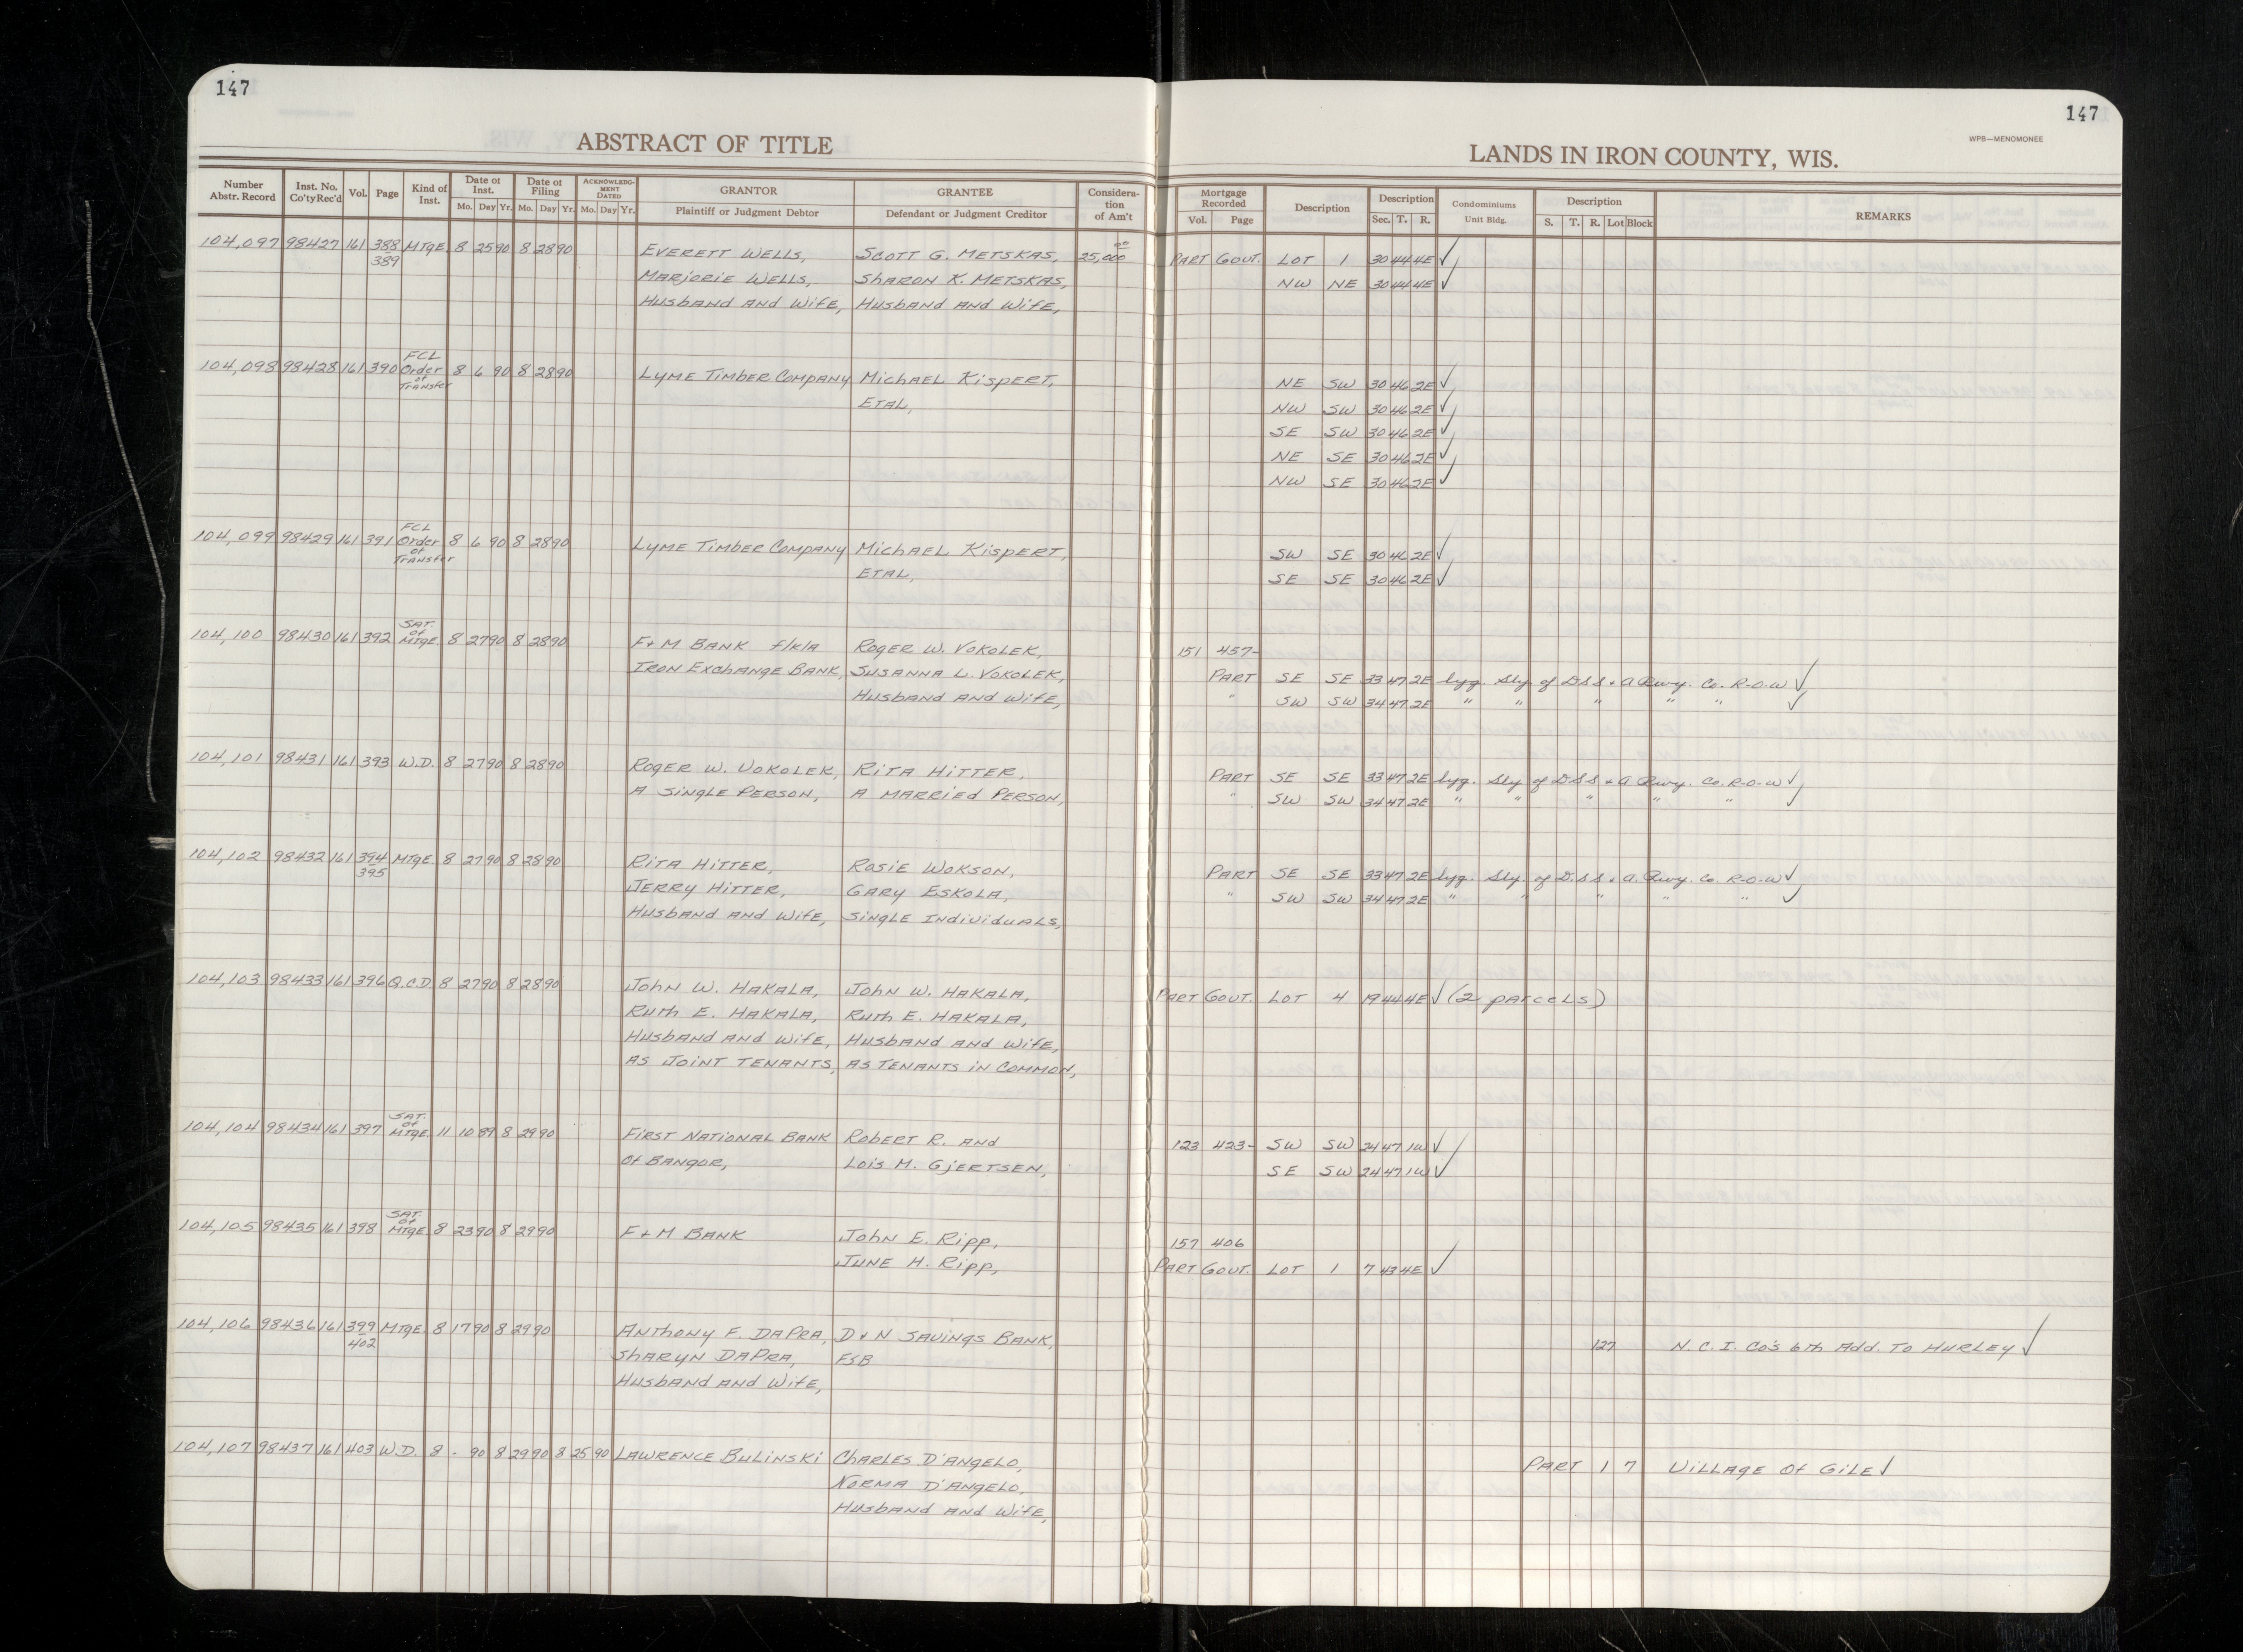 147
147
ABSTRACT OF TITLE
LANDS IN IRON COUNTY, WIS.
WPB—MENOMONEE
Number Abstr. Record Inst. No. Co'ty Rec'd Vol. Page Kind of Inst. Date of Inst. Mo. Day Yr. Date of Filing Mo. Day Yr. ACKNOWLEDGMENT DATED Mo. Day Yr. GRANTOR Plaintiff or Judgment Debtor GRANTEE Defendant or Judgment Creditor Consideration of Am't Mortgage Recorded Vol. Page Description Description Sec. T. R. Condominiums Unit Bldg. Description S. T. R. Lot Block REMARKS
104,097 98427 161 388 389 MTGE. 8 25 90 8 28 90 EVERETT WELLS, SCOTT G. METSKAS, 25,000 00 PART GOVT. LOT 1 30 44 4E ✓
MARJORIE WELLS, SHARON K. METSKAS, NW NE 30 44 4E ✓
HUSBAND AND WIFE, HUSBAND AND WIFE,
104,098 98428 161 390 FCL Order of Transfer 8 6 90 8 28 90 LYME TIMBER COMPANY MICHAEL KISPERT, NE SW 30 46 2E ✓
ETAL, NW SW 30 46 2E ✓
SE SW 30 46 2E ✓
NE SE 30 46 2E ✓
NW SE 30 46 2E ✓
104,099 98429 161 391 FCL Order of Transfer 8 6 90 8 28 90 LYME TIMBER COMPANY MICHAEL KISPERT, SW SE 30 46 2E ✓
ETAL, SE SE 30 46 2E ✓
104,100 98430 161 392 SAT. of MTGE. 8 27 90 8 28 90 F+M BANK f/k/a ROGER W. VOKOLEK, 151 457-
IRON EXCHANGE BANK, SUSANNA L. VOKOLEK, PART SE SE 33 47 2E lyg. Sly. of D.S.S. + A Rwy. Co. R-O-W ✓
HUSBAND AND WIFE, " SW SW 34 47 2E " " " " " ✓
104,101 98431 161 393 W.D. 8 27 90 8 28 90 ROGER W. VOKOLEK, RITA HITTER, PART SE SE 33 47 2E lyg. Sly of D.S.S + A Rwy. Co. R-O-W ✓
A SINGLE PERSON, A MARRIED PERSON, " SW SW 34 47 2E " " " " " ✓
104,102 98432 161 394 395 MTGE 8 27 90 8 28 90 RITA HITTER, ROSIE WOKSON, PART SE SE 33 47 2E lyg. Sly. of D.S.S. + A. Rwy. Co R-O-W ✓
JERRY HITTER, GARY ESKOLA, " SW SW 34 47 2E " " " " " ✓
HUSBAND AND WIFE, SINGLE INDIVIDUALS,
104,103 98433 161 396 Q.C.D. 8 27 90 8 28 90 JOHN W. HAKALA, JOHN W. HAKALA, PART GOVT. LOT 4 19 44 4E ✓ (2 PARCELS)
RUTH E. HAKALA, RUTH E. HAKALA,
HUSBAND AND WIFE, HUSBAND AND WIFE,
AS JOINT TENANTS, AS TENANTS IN COMMON,
104,104 98434 161 397 SAT. of MTGE 11 10 89 8 29 90 FIRST NATIONAL BANK ROBERT R. AND 123 423- SW SW 24 47 1W ✓
OF BANGOR, LOIS M. GJERTSEN, SE SW 24 47 1W ✓
104,105 98435 161 398 SAT. of MTGE 8 23 90 8 29 90 F+M BANK JOHN E. RIPP, 157 406
JUNE H. RIPP, PART GOVT. LOT 1 7 43 4E ✓
104,106 98436 161 399 402 MTGE. 8 17 90 8 29 90 ANTHONY F. DAPRA, D+N SAVINGS BANK, 127 N.C.I. CO'S 6TH ADD. TO HURLEY ✓
SHARYN DAPRA, FSB
HUSBAND AND WIFE,
104,107 98437 161 403 W.D. 8 - 90 8 29 90 8 25 90 LAWRENCE BULINSKI CHARLES D'ANGELO, PART 1 7 VILLAGE OF GILE ✓
NORMA D'ANGELO,
HUSBAND AND WIFE,